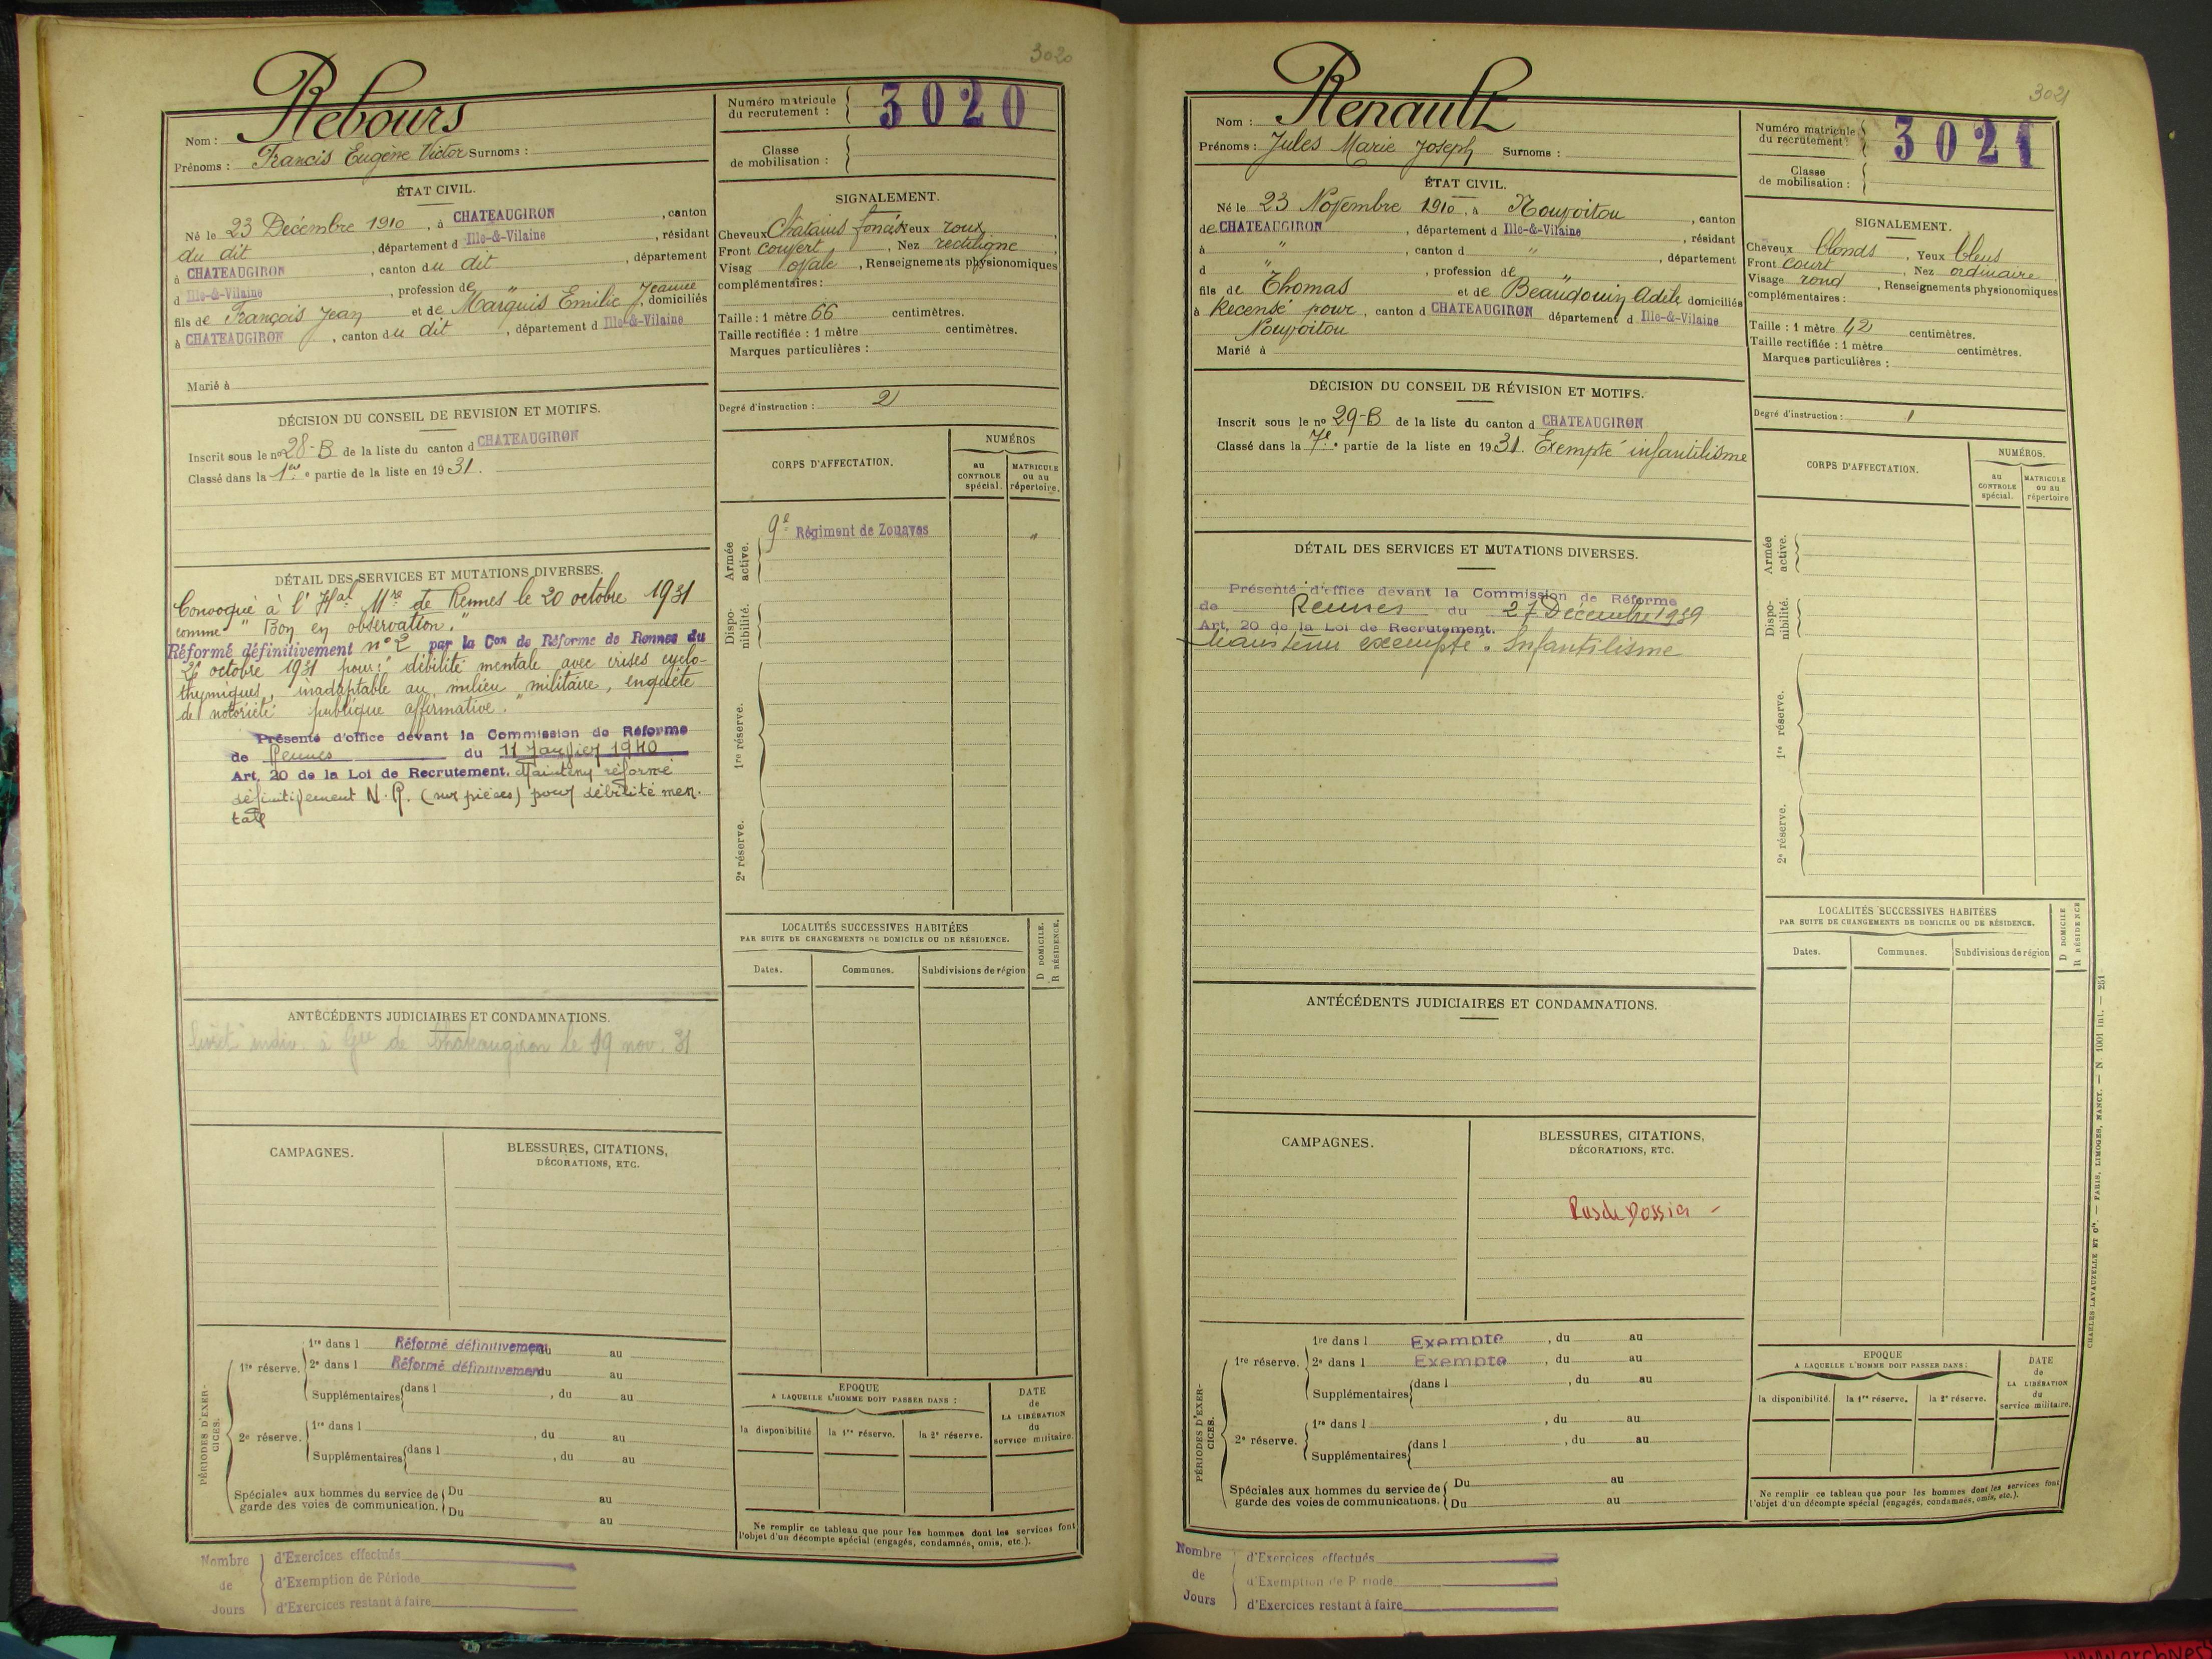 3020
Rebours
Nom :
Prénoms : Francis Eugène Victor Surnoms :
Numéro matricule
du recrutement :
3020
Classe
de mobilisation :
ÉTAT CIVIL.
Né le 23 Décembre 1910, à CHATEAUGIRON, canton
du dit, département d Ille-&-Vilaine, résidant
à CHATEAUGIRON, canton du dit, département
d Ille-&-Vilaine, profession de "
fils de François Jean et de Marquis Emilie Jeanne, domiciliés
à CHATEAUGIRON, canton du dit, département d Ille-&-Vilaine
Marié à
SIGNALEMENT.
Cheveux Chatains foncés Yeux roux,
Front couvert, Nez rectiligne
Visag ovale, Renseignements physionomiques
complémentaires :
Taille : 1 mètre 66 centimètres.
Taille rectifiée : 1 mètre centimètres.
Marques particulières :
Degré d'instruction : 2
DÉCISION DU CONSEIL DE REVISION ET MOTIFS.
Inscrit sous le no 28-B de la liste du canton d CHATEAUGIRON
Classé dans la 1ère e partie de la liste en 1931.
CORPS D'AFFECTATION.
NUMÉROS
au
CONTROLE
spécial.
MATRICULE
ou au
répertoire.
Armée
active.
9e Régiment de Zouaves "
Dispo-
nibilité.
1re réserve.
2e réserve.
DÉTAIL DES SERVICES ET MUTATIONS DIVERSES.
Convoqué à l'Hal Mre de Rennes le 20 octobre 1931
comme " Bon en observation."
Réformé définitivement n° 2 par la Con de Réforme de Rennes du
26 octobre 1931 pour : "débilité mentale avec crises cyclo-
thymiques, inadaptable au milieu militaire, enquête
de notoriété publique affirmative."
Présenté d'office devant la Commission de Réforme
de Rennes du 11 Janvier 1940
Art. 20 de la Loi de Recrutement. Maintenu réformé
définitivement N.P. (sur pièces) pour débilité men-
tale
LOCALITÉS SUCCESSIVES HABITÉES
PAR SUITE DE CHANGEMENTS DE DOMICILE OU DE RÉSIDENCE.
D DOMICILE.
R RÉSIDENCE.
Dates.
Communes.
Subdivisions de région
ANTÉCÉDENTS JUDICIAIRES ET CONDAMNATIONS.
livret indiv. à Gie de Chateaugiron le 19 nov. 31
CAMPAGNES.
BLESSURES, CITATIONS,
DÉCORATIONS, ETC.
PÉRIODES D'EXER-
CICES.
1re réserve.
1re dans l Réformé définitivement du au
2e dans l Réformé définitivement du au
Supplémentaires dans l , du au
2e réserve.
1re dans l , du au
Supplémentaires dans l , du au
Spéciales aux hommes du service de
garde des voies de communication.
Du au
Du au
EPOQUE
A LAQUELLE L'HOMME DOIT PASSER DANS :
la disponibilité
la 1re réserve.
la 2e réserve.
DATE
de
LA LIBÉRATION
du
service militaire.
Ne remplir ce tableau que pour les hommes dont les services font
l'objet d'un décompte spécial (engagés, condamnés, omis, etc.).
Nombre
de
Jours
d'Exercices effectués
d'Exemption de Période
d'Exercices restant à faire
3021
Renault
Nom :
Prénoms : Jules Marie Joseph Surnoms :
Numéro matricule
du recrutement :
3021
Classe
de mobilisation :
ÉTAT CIVIL.
Né le 23 Novembre 1910, à Nouvoitou, canton
de CHATEAUGIRON, département d Ille-&-Vilaine, résidant
à ", canton d ", département
d ", profession de "
fils de Thomas et de Beaudouin Adèle domiciliés
à Recensé pour, canton d CHATEAUGIRON département d Ille-&-Vilaine
Nouvoitou
Marié à
SIGNALEMENT.
Cheveux blonds, Yeux bleus
Front court, Nez ordinaire
Visage rond, Renseignements physionomiques
complémentaires :
Taille : 1 mètre 42 centimètres.
Taille rectifiée : 1 mètre centimètres.
Marques particulières :
Degré d'instruction : 1
DÉCISION DU CONSEIL DE RÉVISION ET MOTIFS.
Inscrit sous le no 29-B de la liste du canton d CHATEAUGIRON
Classé dans la 7e e partie de la liste en 1931. Exempté infantilisme
CORPS D'AFFECTATION.
NUMÉROS.
au
CONTROLE
spécial.
MATRICULE
ou au
répertoire
Armée
active.
Dispo-
nibilité.
1re réserve.
2e réserve.
DÉTAIL DES SERVICES ET MUTATIONS DIVERSES.
Présenté d'office devant la Commission de Réforme
de Rennes du 27 Décembre 1939
Art. 20 de la Loi de Recrutement.
Maintenu exempté. Infantilisme
LOCALITÉS SUCCESSIVES HABITÉES
PAR SUITE DE CHANGEMENTS DE DOMICILE OU DE RÉSIDENCE.
D DOMICILE
R RÉSIDENCE
Dates.
Communes.
Subdivisions de région
ANTÉCÉDENTS JUDICIAIRES ET CONDAMNATIONS.
CAMPAGNES.
BLESSURES, CITATIONS,
DÉCORATIONS, ETC.
Pas de Dossier -
PÉRIODES D'EXER-
CICES.
1re réserve.
1re dans l Exempte, du au
2e dans l Exempte, du au
Supplémentaires dans l , du au
2e réserve.
1re dans l , du au
Supplémentaires dans l , du au
Spéciales aux hommes du service de
garde des voies de communications.
Du au
Du au
EPOQUE
A LAQUELLE L'HOMME DOIT PASSER DANS :
la disponibilité.
la 1re réserve.
la 2e réserve.
DATE
de
LA LIBÉRATION
du
service militaire.
Ne remplir ce tableau que pour les hommes dont les services font
l'objet d'un décompte spécial (engagés, condamnés, omis, etc.).
CHARLES-LAVAUZELLE ET Cie. — PARIS, LIMOGES, NANCY. — N. 1001 int. — 251
Nombre
de
Jours
d'Exercices effectués
d'Exemption de Période
d'Exercices restant à faire